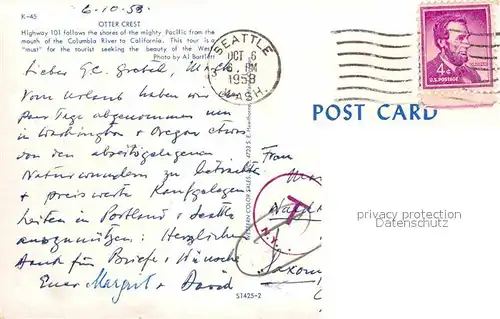 6.10.58.
K-45
OTTER CREST
Highway 101 follows the shores of the mighty Pacific from the
mouth of the Columbia River to California. This tour is a
"must" for the tourist seeking the beauty of the West.
Photo by Al Bartlett
Vom Urlaub haben wir ein
paar Tage abgenommen um
in Washington & Oregon etwas
von den abseitsgelegenen
Naturwundern zu betrachten
& preiswerte Kaufgelegen-
heiten in Portland & Seattle
auszunützen. Herzlichen
Dank für Briefe & Wünsche
Euer Margrit & David
SEATTLE
OCT 6
PM
1958
WASH.
4¢
U.S. POSTAGE
POST CARD
WESTERN COLOR SALES,
Frau
T
N.Y.
privacy protection
Datenschutz
51425-2